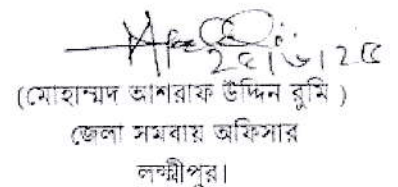 ২৫|৬|২৫
(মোহাম্মদ আশরাফ উদ্দিন রুমি )
জেলা সমবায় অফিসার
লক্ষ্মীপুর।